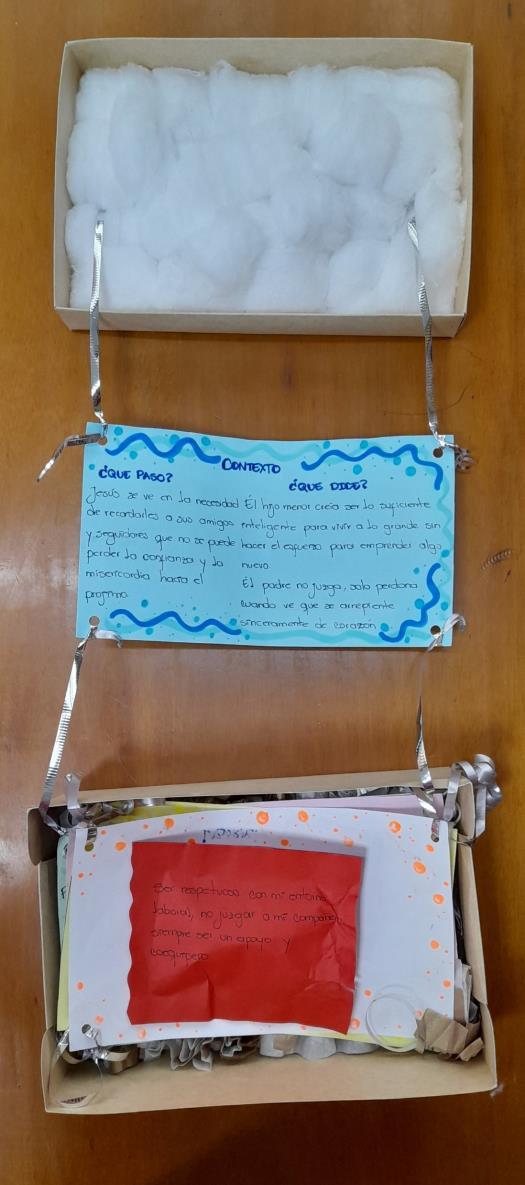 CONTEXTO
¿QUE PASO?
Jesús se ve en la necesidad
de recordarles a sus amigos
y seguidores que no se puede
perder la confianza y la
misericordia hacia el
projimo.
¿QUE DICE?
Él hijo menor creía ser lo suficiente
inteligente para vivir a lo grande sin
hacer el esfuerzo para emprender algo
nuevo.
Él padre no juzga, solo perdona
cuando ve que se arrepiente
sinceramente de corazón
Ser respetuosa con mi entorno
laboral, no juzgar a mi compañero,
siempre ser un apoyo y
coequipero